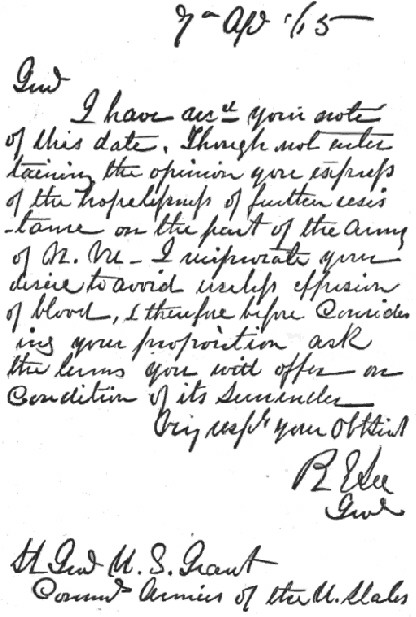 7th Apl '65
Genl
I have recd your note
of this date. Though not enter
taining the opinion you express
of the hopelessness of further resis
-tance on the part of the Army
of N. Va - I reciprocate your
desire to avoid useless effusion
of blood, & therefore before Consider
ing your proposition ask
the terms you will offer on
Condition of its Surrender
Very respy your Obt Svt
R E Lee
Genl
Lt Genl U. S. Grant
Commd Armies of the U. States